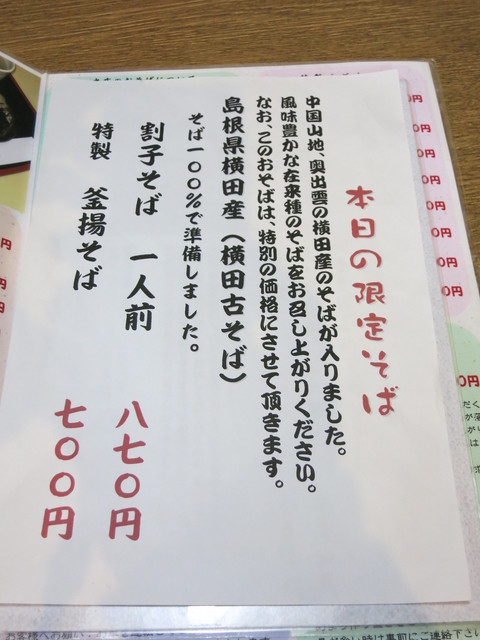 本日の限定そば
中国山地、奥出雲の横田産のそばが入りました。
風味豊かな在来種のそばをお召し上がりください。
なお、このおそばは、特別の価格にさせて頂きます。
島根県横田産（横田古そば）
そば一〇〇％で準備しました。
割子そば 一人前 八七〇円
特製 釜揚そば 七〇〇円